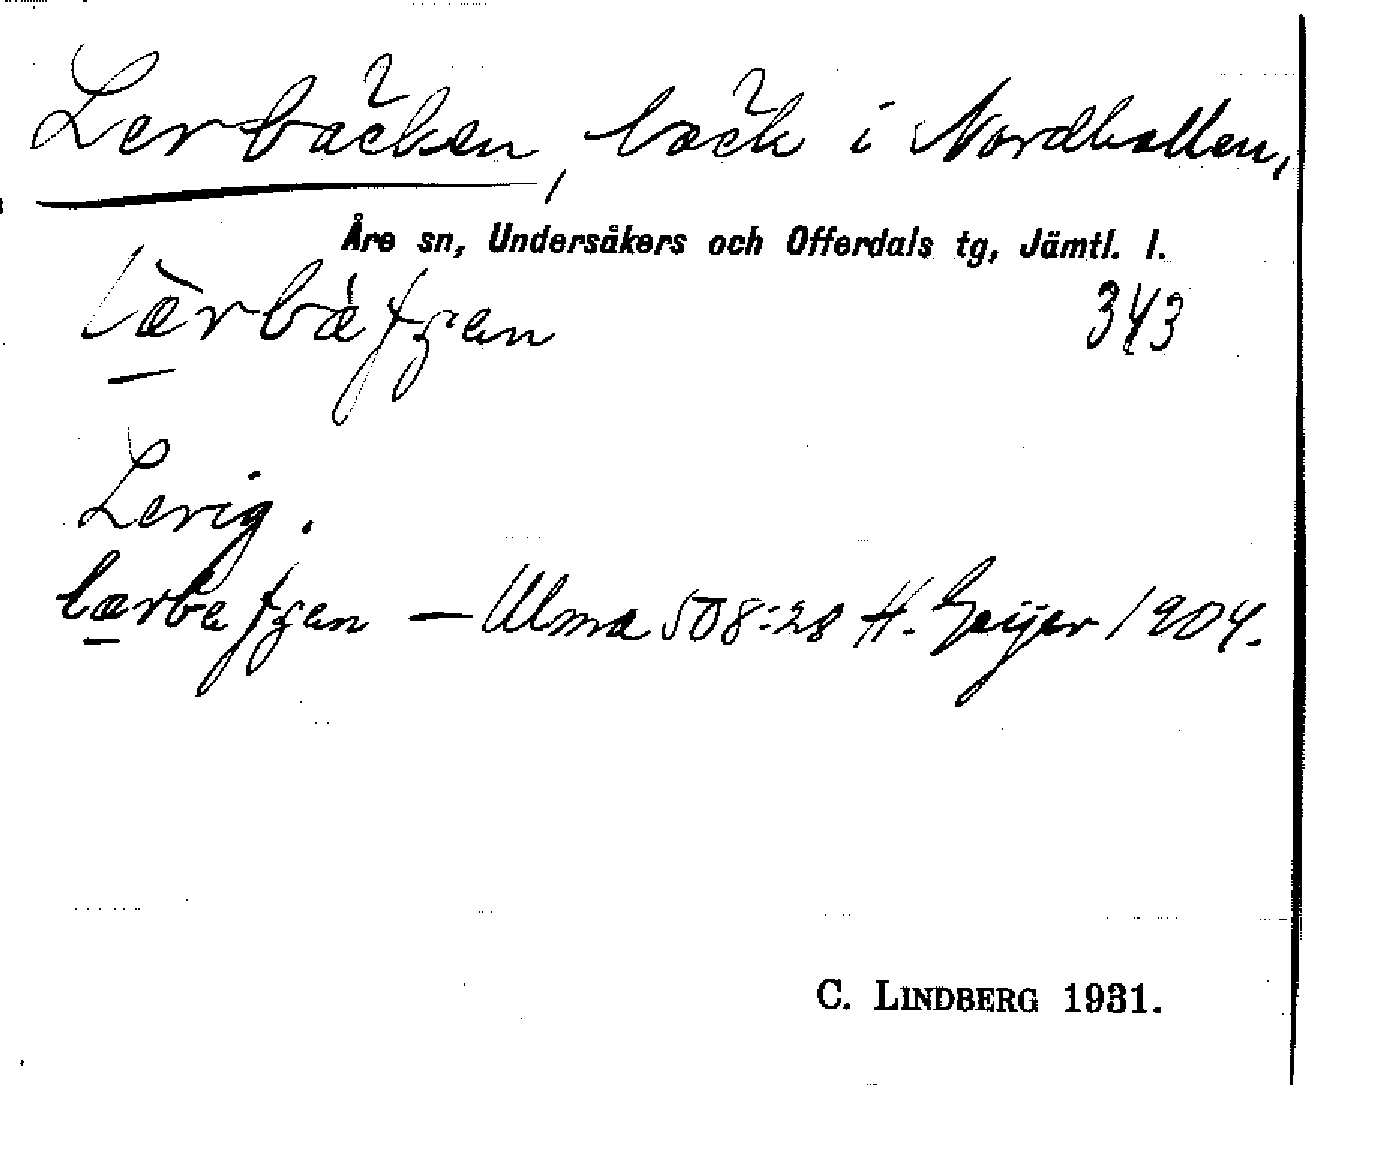 Lerbäcken, bäck i Nordhallen,
Åre sn, Undersåkers och Offerdals tg, Jämtl. l.
lærbæʈʂen 343
Lerig.
lærbæʈʂen — Ulma 508:28 H. Geijer 1904.
C. LINDBERG 1931.